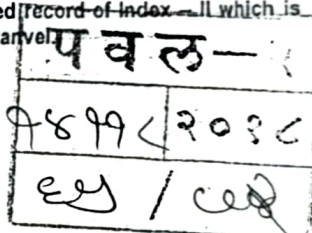 ed record of Index - II which is
anvel.
प व ल -
१४११८ २०१८